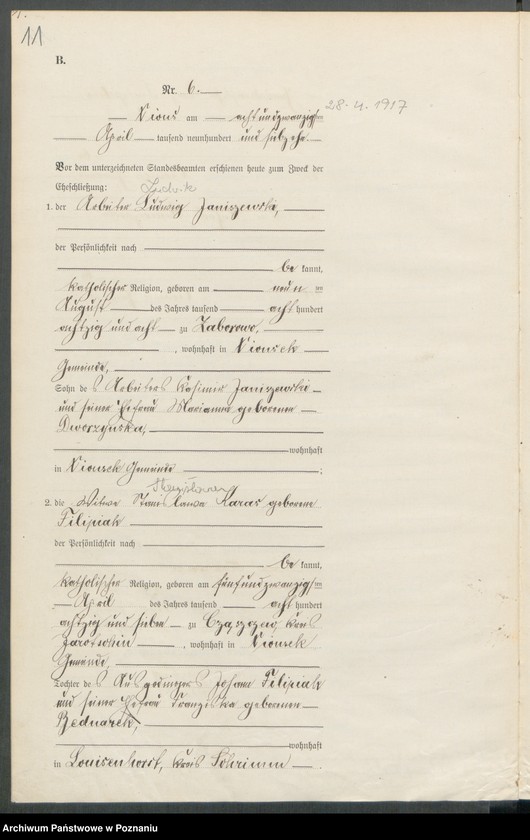 11
B.
Nr. 6.
Xions am achtundzwanzigsten
28. 4. 1917
April tausend neunhundert und siebzehn
Vor dem unterzeichneten Standesbeamten erschienen heute zum Zweck der
Eheschließung:
Ludwik
1. der Arbeiter Ludwig Janiszewski,
der Persönlichkeit nach
be kannt,
katholischer Religion, geboren am neun ten
August des Jahres tausend acht hundert
achtzig und acht zu Zaborowo,
, wohnhaft in Xionsek
Gemeinde,
Sohn des Arbeiters Kasimir Janiszewski
und seiner Ehefrau Marianna geborenen
Dworzynska,
wohnhaft
in Xionsek Gemeinde ;
Stanisława
2. die Witwe Stanislawa Karas geborene
Filipiak
der Persönlichkeit nach
be kannt,
katholischer Religion, geboren am fünfundzwanzigsten
April des Jahres tausend acht hundert
achtzig und sieben zu Kreis
Jarotschin , wohnhaft in Xionsek
Gemeinde,
Tochter des Ausgedingers Johann Filipiak
und seiner Ehefrau Franziska geborenen
Bednarek,
wohnhaft
in Louisenhorst, Kreis Schrimm .
Archiwum Państwowe w Poznaniu